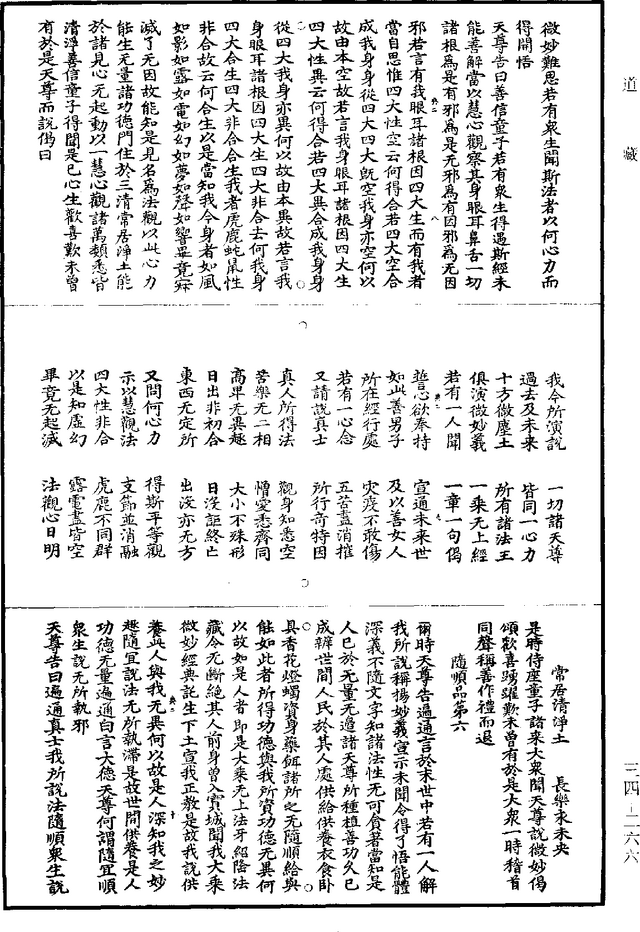 道藏
三四—二六六
微妙難思若有衆生聞斯法者以何心力而
得開悟
天尊告曰善信童子若有衆生得遇斯經未
能善解當以慧心觀察其身眼耳鼻舌一切
諸根爲是有邪爲是无邪爲有因邪爲无因
邪若言有我眼耳諸根因四大生而有我者
當自思惟四大性空云何得合若四大空合
成我身身從四大四大旣空我身亦空何以
故由本空故若言我身眼耳諸根因四大生
四大性異云何得合若四大異合成我身身
從四大我身亦異何以故由本異故若言我
身眼耳諸根因四大生四大非合云何我身
四大合生四大非合合生我者虎鹿蛇鼠性
非合故云何合生以是當知我今身者如風
如影如露如電如幻如夢如聲如響畢竟寂
滅了无因故能知是見名爲法觀以此心力
能生无量諸功德門住於三清常居淨土能
於諸見心无起動以一慧心觀諸萬類悉皆
清淨善信童子得聞是已心生歡喜歎未曾
有於是天尊而說偈曰
我今所演說 一切諸天尊
過去及未來 皆同一心力
十方微塵土 所有諸法王
俱演微妙義 一乘无上經
若有一人聞 一章一句偈
誓心欲奉持 宣通未來世
如此善男子 及以善女人
所在經行處 灾疫不敢傷
若有一心念 五苦盡消摧
又請說真士 所行奇特因
真人所得法 觀身知悉空
苦樂无二相 憎愛悉齊同
高卑无異趣 大小不殊形
日出非初合 日沒詎終亡
東西无定所 出沒亦无方
又問何心力 得斯平等觀
示以慧觀法 支節並消融
四大性非合 虎鹿不同群
以是知虛幻 露電盡皆空
畢竟无起滅 法觀心日明
常居清淨土 長樂永未央
是時侍座童子諸來大衆聞天尊說微妙偈
頌歡喜踊躍歎未曾有於是大衆一時稽首
同聲稱善作禮而退
隨順品第六
爾時天尊告遍通言於末世中若有一人解
我所說稱揚妙義宣示未聞令得了悟能體
深義不隨文字知諸法性无可貪著當知是
人已於无量无邊諸天尊所種植善功久已
成辦世間人民於其人處供給供養衣食卧
具香花燈燭資身藥餌諸所之无隨順給與
能如此者所得功德與我所資功德无異何
以故如是人者即是大乘无上法牙紹隆法
藏令无斷絶其人前身曾入寶城聞我大乘
微妙經典託生下土宣我正教是故我說供
養此人與我无異何以故是人深知我之妙
趣隨宜說法无所執滯是故世間供養是人
功德无量遍通白言大德天尊何謂隨宜順
衆生說无所執邪
天尊告曰遍通真士我所說法隨順衆生說